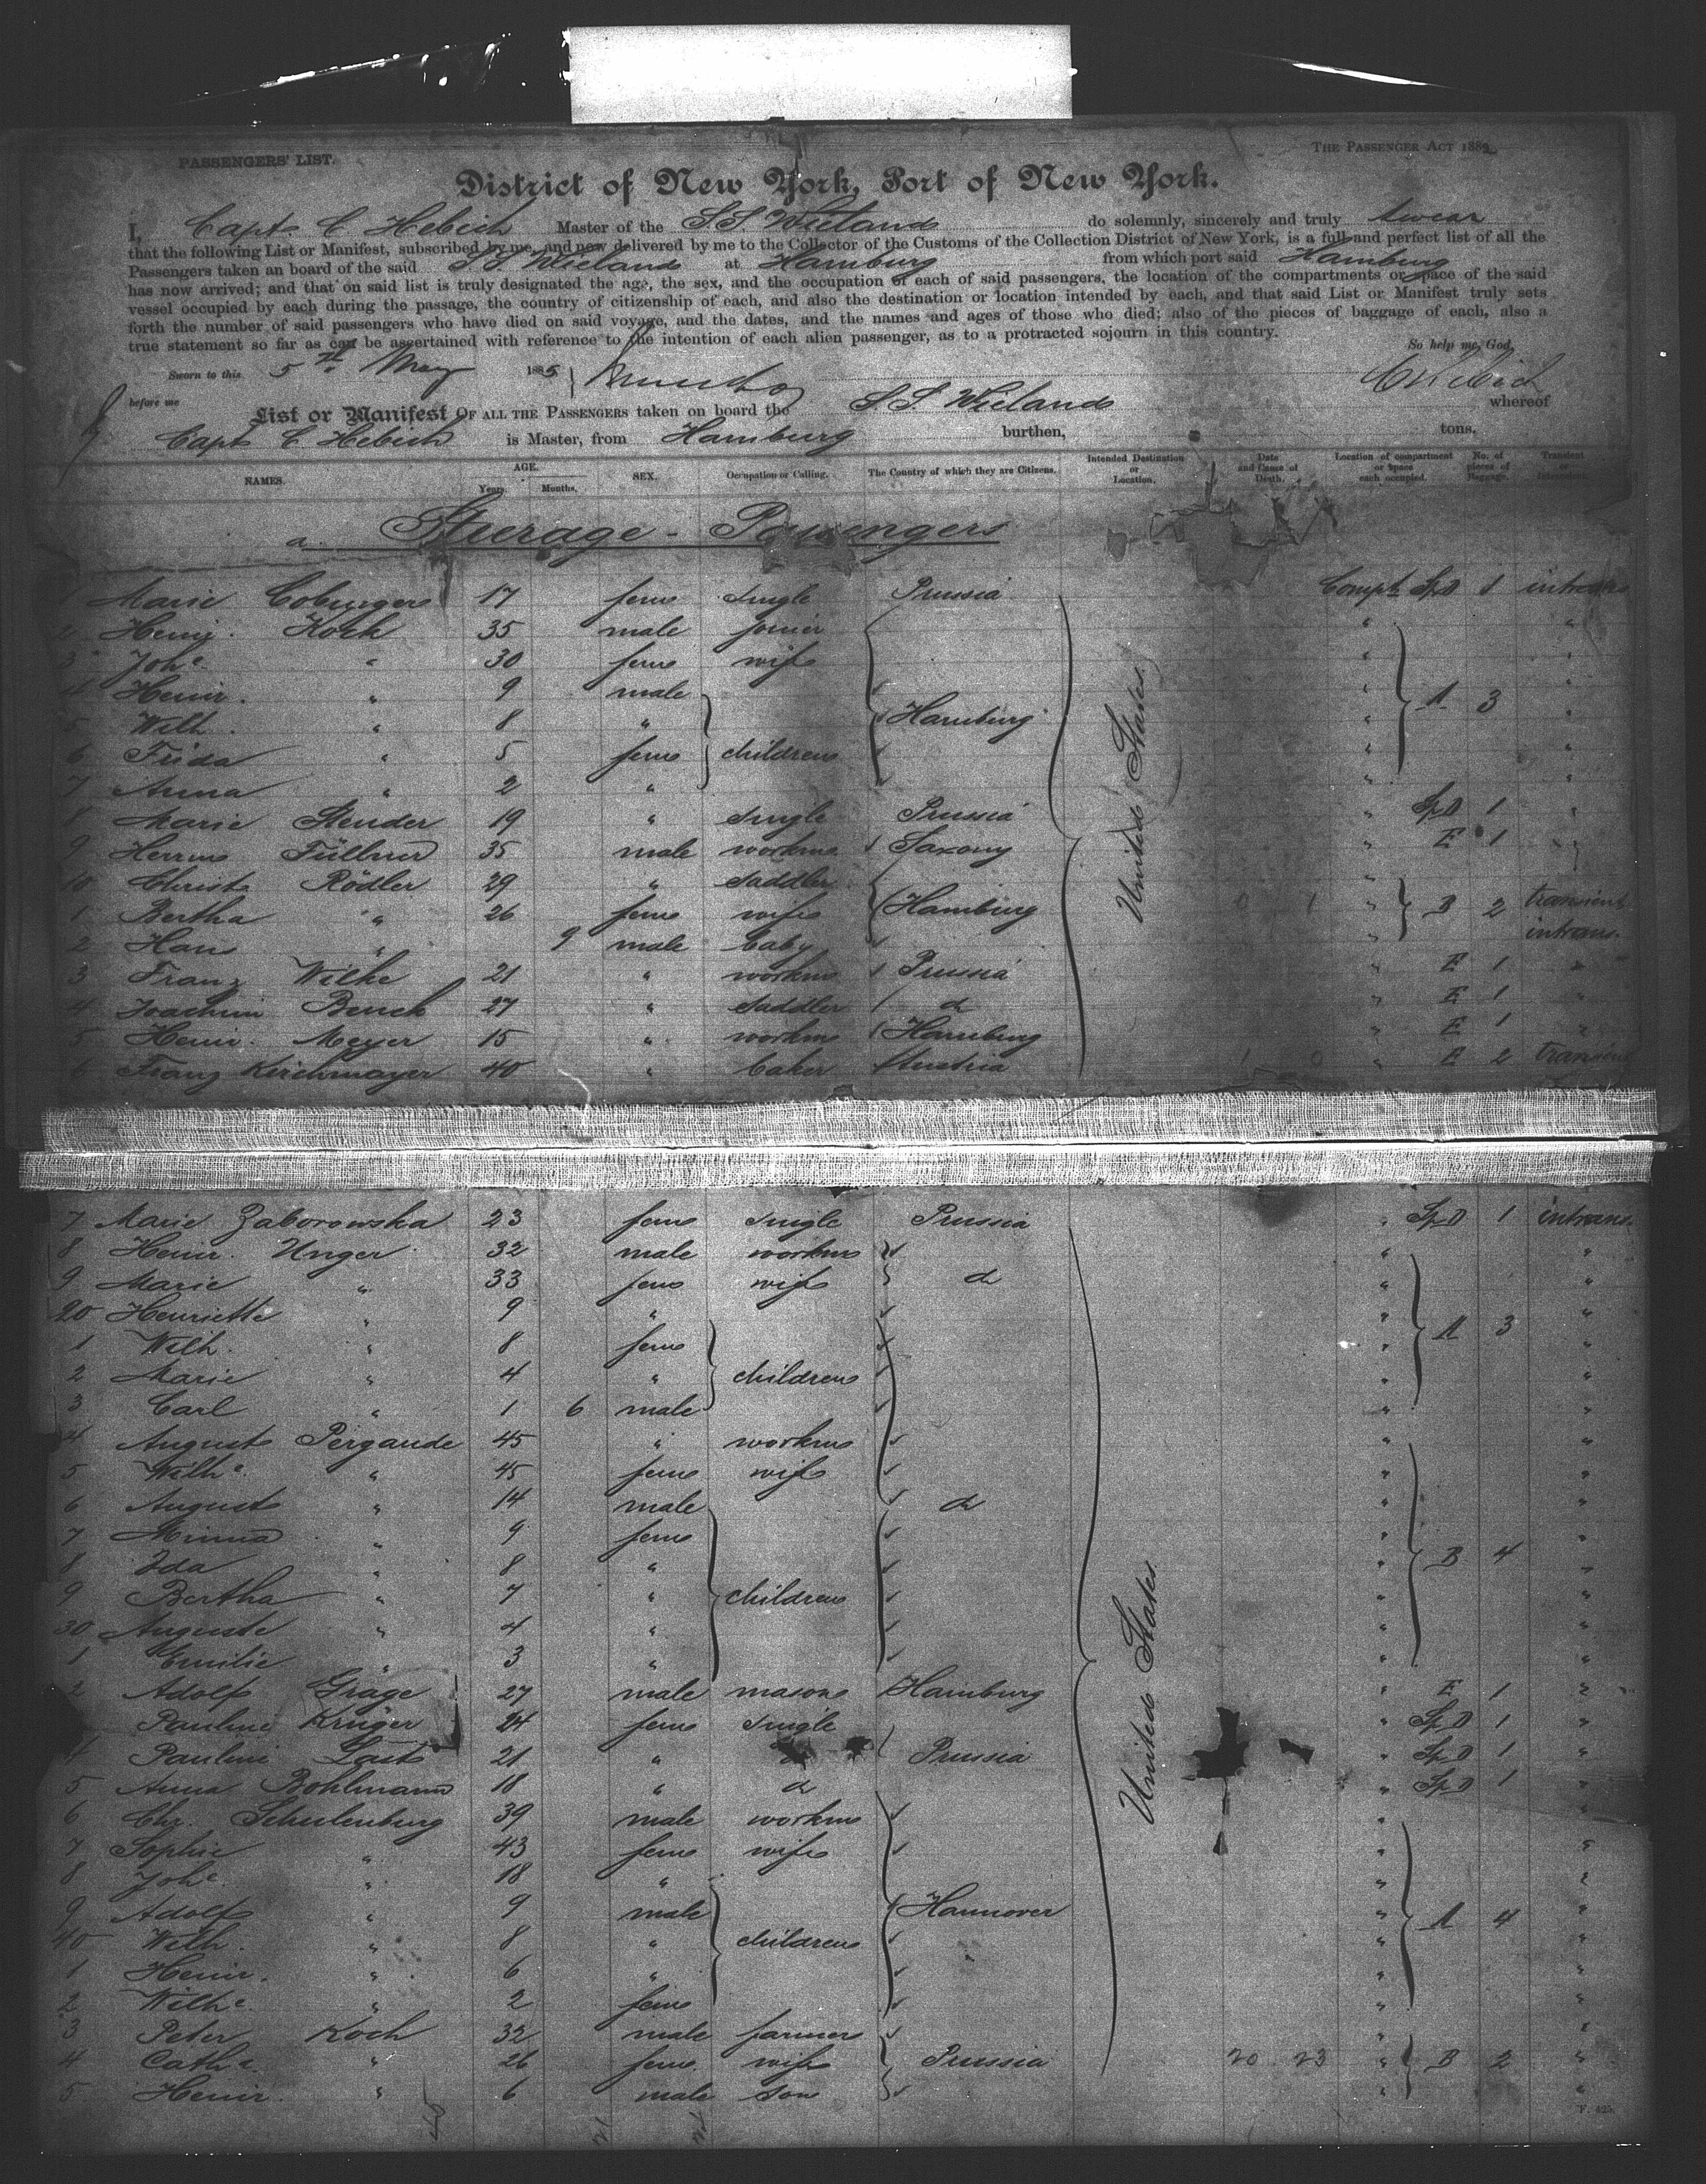 PASSENGERS' LIST.
THE PASSENGER ACT 1882
District of New York, Port of New York.
I, Capt. C Hebich Master of the S.S. Wieland do solemnly, sincerely and truly swear
that the following List or Manifest, subscribed by me, and now delivered by me to the Collector of the Customs of the Collection District of New York, is a full and perfect list of all the
Passengers taken an board of the said S.S. Wieland at Hamburg from which port said Hamburg
has now arrived; and that on said list is truly designated the age, the sex, and the occupation of each of said passengers, the location of the compartments or space of the said
vessel occupied by each during the passage, the country of citizenship of each, and also the destination or location intended by each, and that said List or Manifest truly sets
forth the number of said passengers who have died on said voyage, and the dates, and the names and ages of those who died; also of the pieces of baggage of each, also a
true statement so far as can be ascertained with reference to the intention of each alien passenger, as to a protracted sojourn in this country.
So help me, God,
Sworn to this 5th May 1885 C Hebich
before me
List or Manifest OF ALL THE PASSENGERS taken on board the S.S. Wieland whereof
Capt C Hebich is Master, from Hamburg burthen, tons.
NAMES. AGE. Years. Months. SEX. Occupation or Calling. The Country of which they are Citizens. Intended Destination or Location. Date and Cause of Death. Location of compartment or space each occupied. No. of pieces of Baggage. Transient or
a. Steerage - Passengers
1 Marie Coburger 17 fem single Prussia Compt Sp.D 1 intrans
2 Heinr. Koch 35 male joiner "
3 Joh.e " 30 fem wife " "
4 Heinr. " 9 male " "
5 Wilh. " 8 " Hamburg " A 3 "
6 Frida " 5 fem children " "
7 Anna " 2 " " "
8 Marie Stender 19 " single Prussia " Sp.D 1 "
9 Herrm Füllner 35 male workm Saxony " E 1 "
10 Christ Rödler 29 " saddler "
1 Bertha " 26 fem wife Hamburg 0 1 " B 2 transient
2 Hans " 9 male baby " intrans.
3 Franz Wilke 21 " workm Prussia " E 1 "
4 Joachim Benck 27 " saddler d " E 1 "
5 Heinr. Meyer 15 " workm Hamburg " E 1 "
6 Franz Kirchmayer 40 " baker Austria 1 0 " E 2 transient
United States.
7 Marie Zaborowska 23 fem single Prussia " Sp.D 1 intrans.
8 Heinr. Unger 32 male workm " "
9 Marie " 33 fem wife d " "
20 Henriette " 9 " " "
1 Wilh. " 8 fem " A 3 "
2 Marie " 4 " children " "
3 Carl " 1 6 male " "
4 August Pergande 45 " workm " "
5 Wilh.e " 45 fem wife " "
6 August " 14 male d " "
7 Minna " 9 fem " "
8 Ida " 8 " " B 4 "
9 Bertha " 7 " children " "
30 Auguste " 4 " " "
1 Emilie " 3 " " "
2 Adolf Grage 27 male mason Hamburg " E 1 "
Pauline Krüger 24 fem single " Sp.D 1 "
4 Pauline Last 21 " Prussia " Sp.D 1 "
5 Anna Bohlmann 18 " d " Sp.D 1 "
6 Chr. Schulenburg 39 male workm " "
7 Sophie " 43 fem wife " "
8 Joh.e " 18 " " "
9 Adolf " 9 male Hannover " A 4 "
40 Wilh. " 8 " children " "
1 Heinr. " 6 " " "
2 Wilh.e " 2 fem " "
3 Peter Koch 32 male farmer " "
4 Cath.a " 26 fem. wife Prussia 20 23 " B 2 "
5 Heinr. " 6 male son " "
United States.
F. 425.